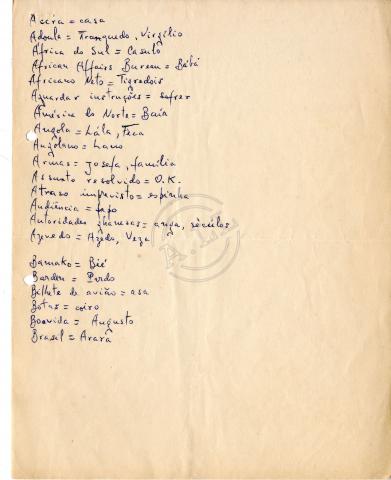 Accra = casa
Adoula = Tranquedo, Virgílio
Africa do Sul = Casulo
African Affairs Bureau = Bábá
Africano Neto = Tigredois
Aguardar instruções = sofrer
América do Norte = Baía
Angola = Lála, Teca
Angolano = Lano
Armas = Josefa, família
Assunto resolvido = O.K.
Atraso imprevisto = espinha
Audiência = papo
Autoridades ghanesas = séculos
Azevedo = Azêdo, Veza
Bamako = Bié
Barden = Perdo
Bilhete de avião = asa
Botas = coiro
Boavida = Augusto
Brasil = Arará